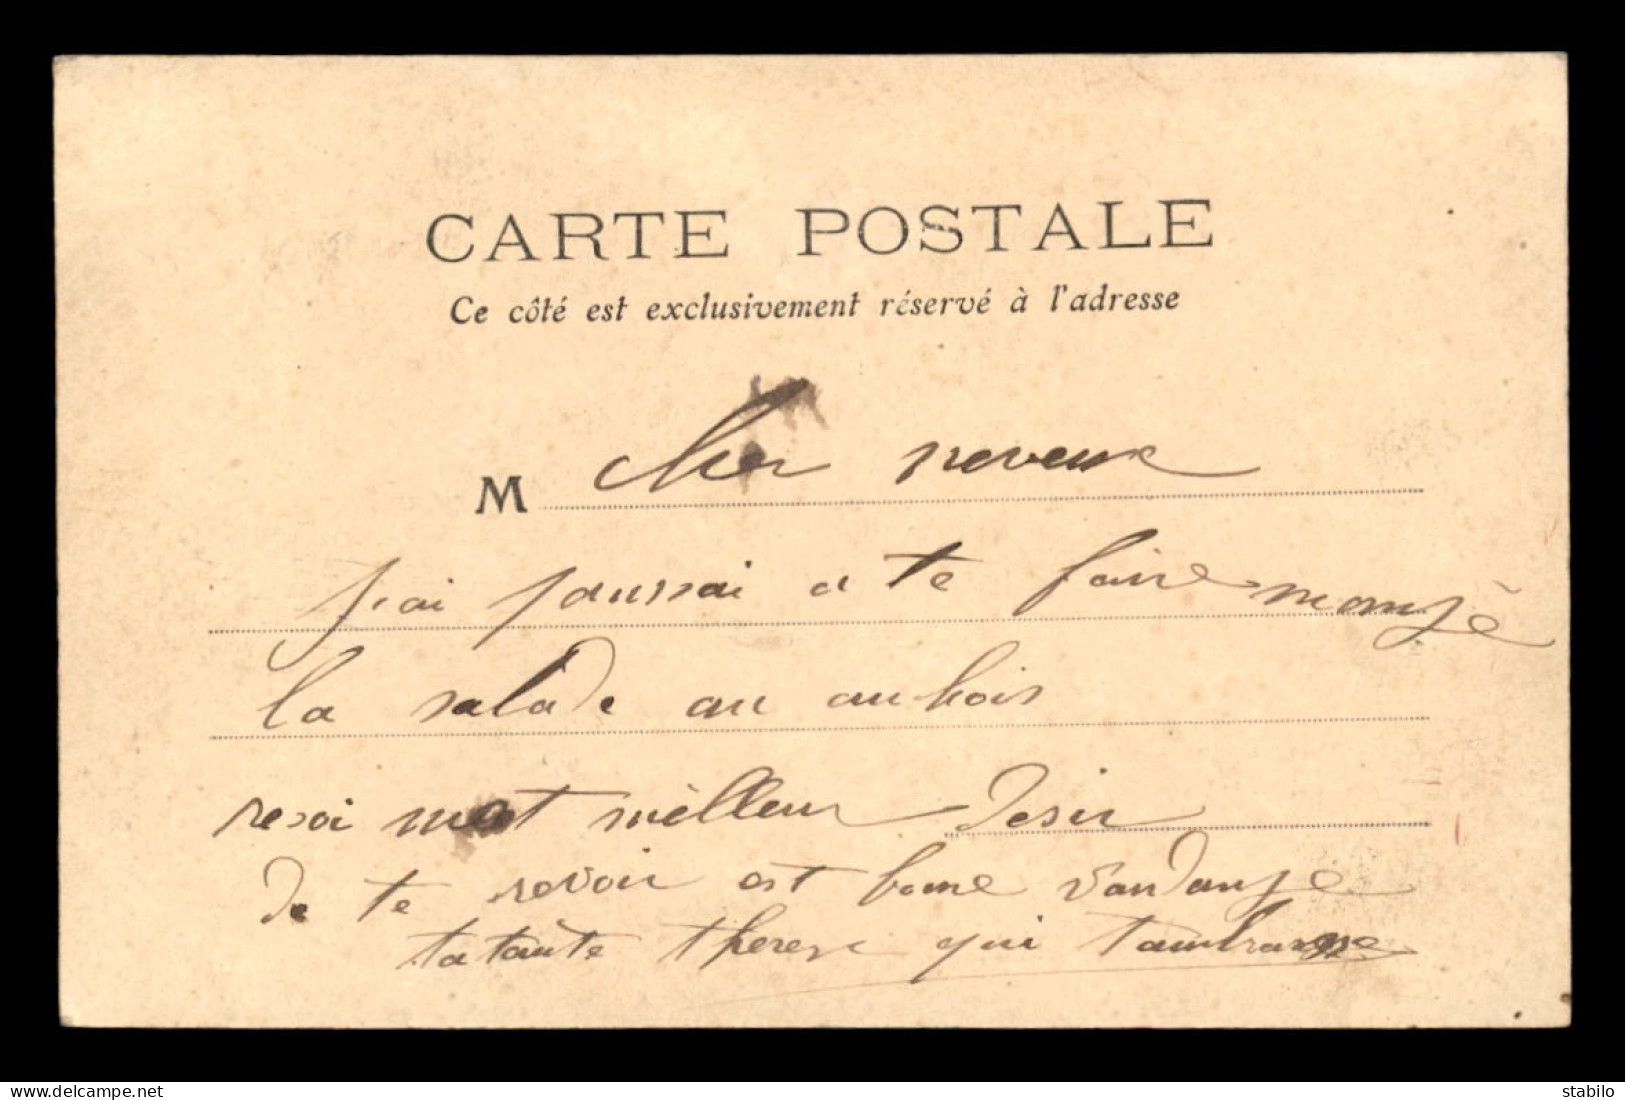 CARTE POSTALE
Ce côté est exclusivement réservé à l'adresse
M cher neveux
j'ai panssai a te faire mangè
la salade au anbois
resoi met mèlleur desir
de te revoir est bonne vandange
ta tante therese qui t'ambrasse
www.delcampe.net
stabilo